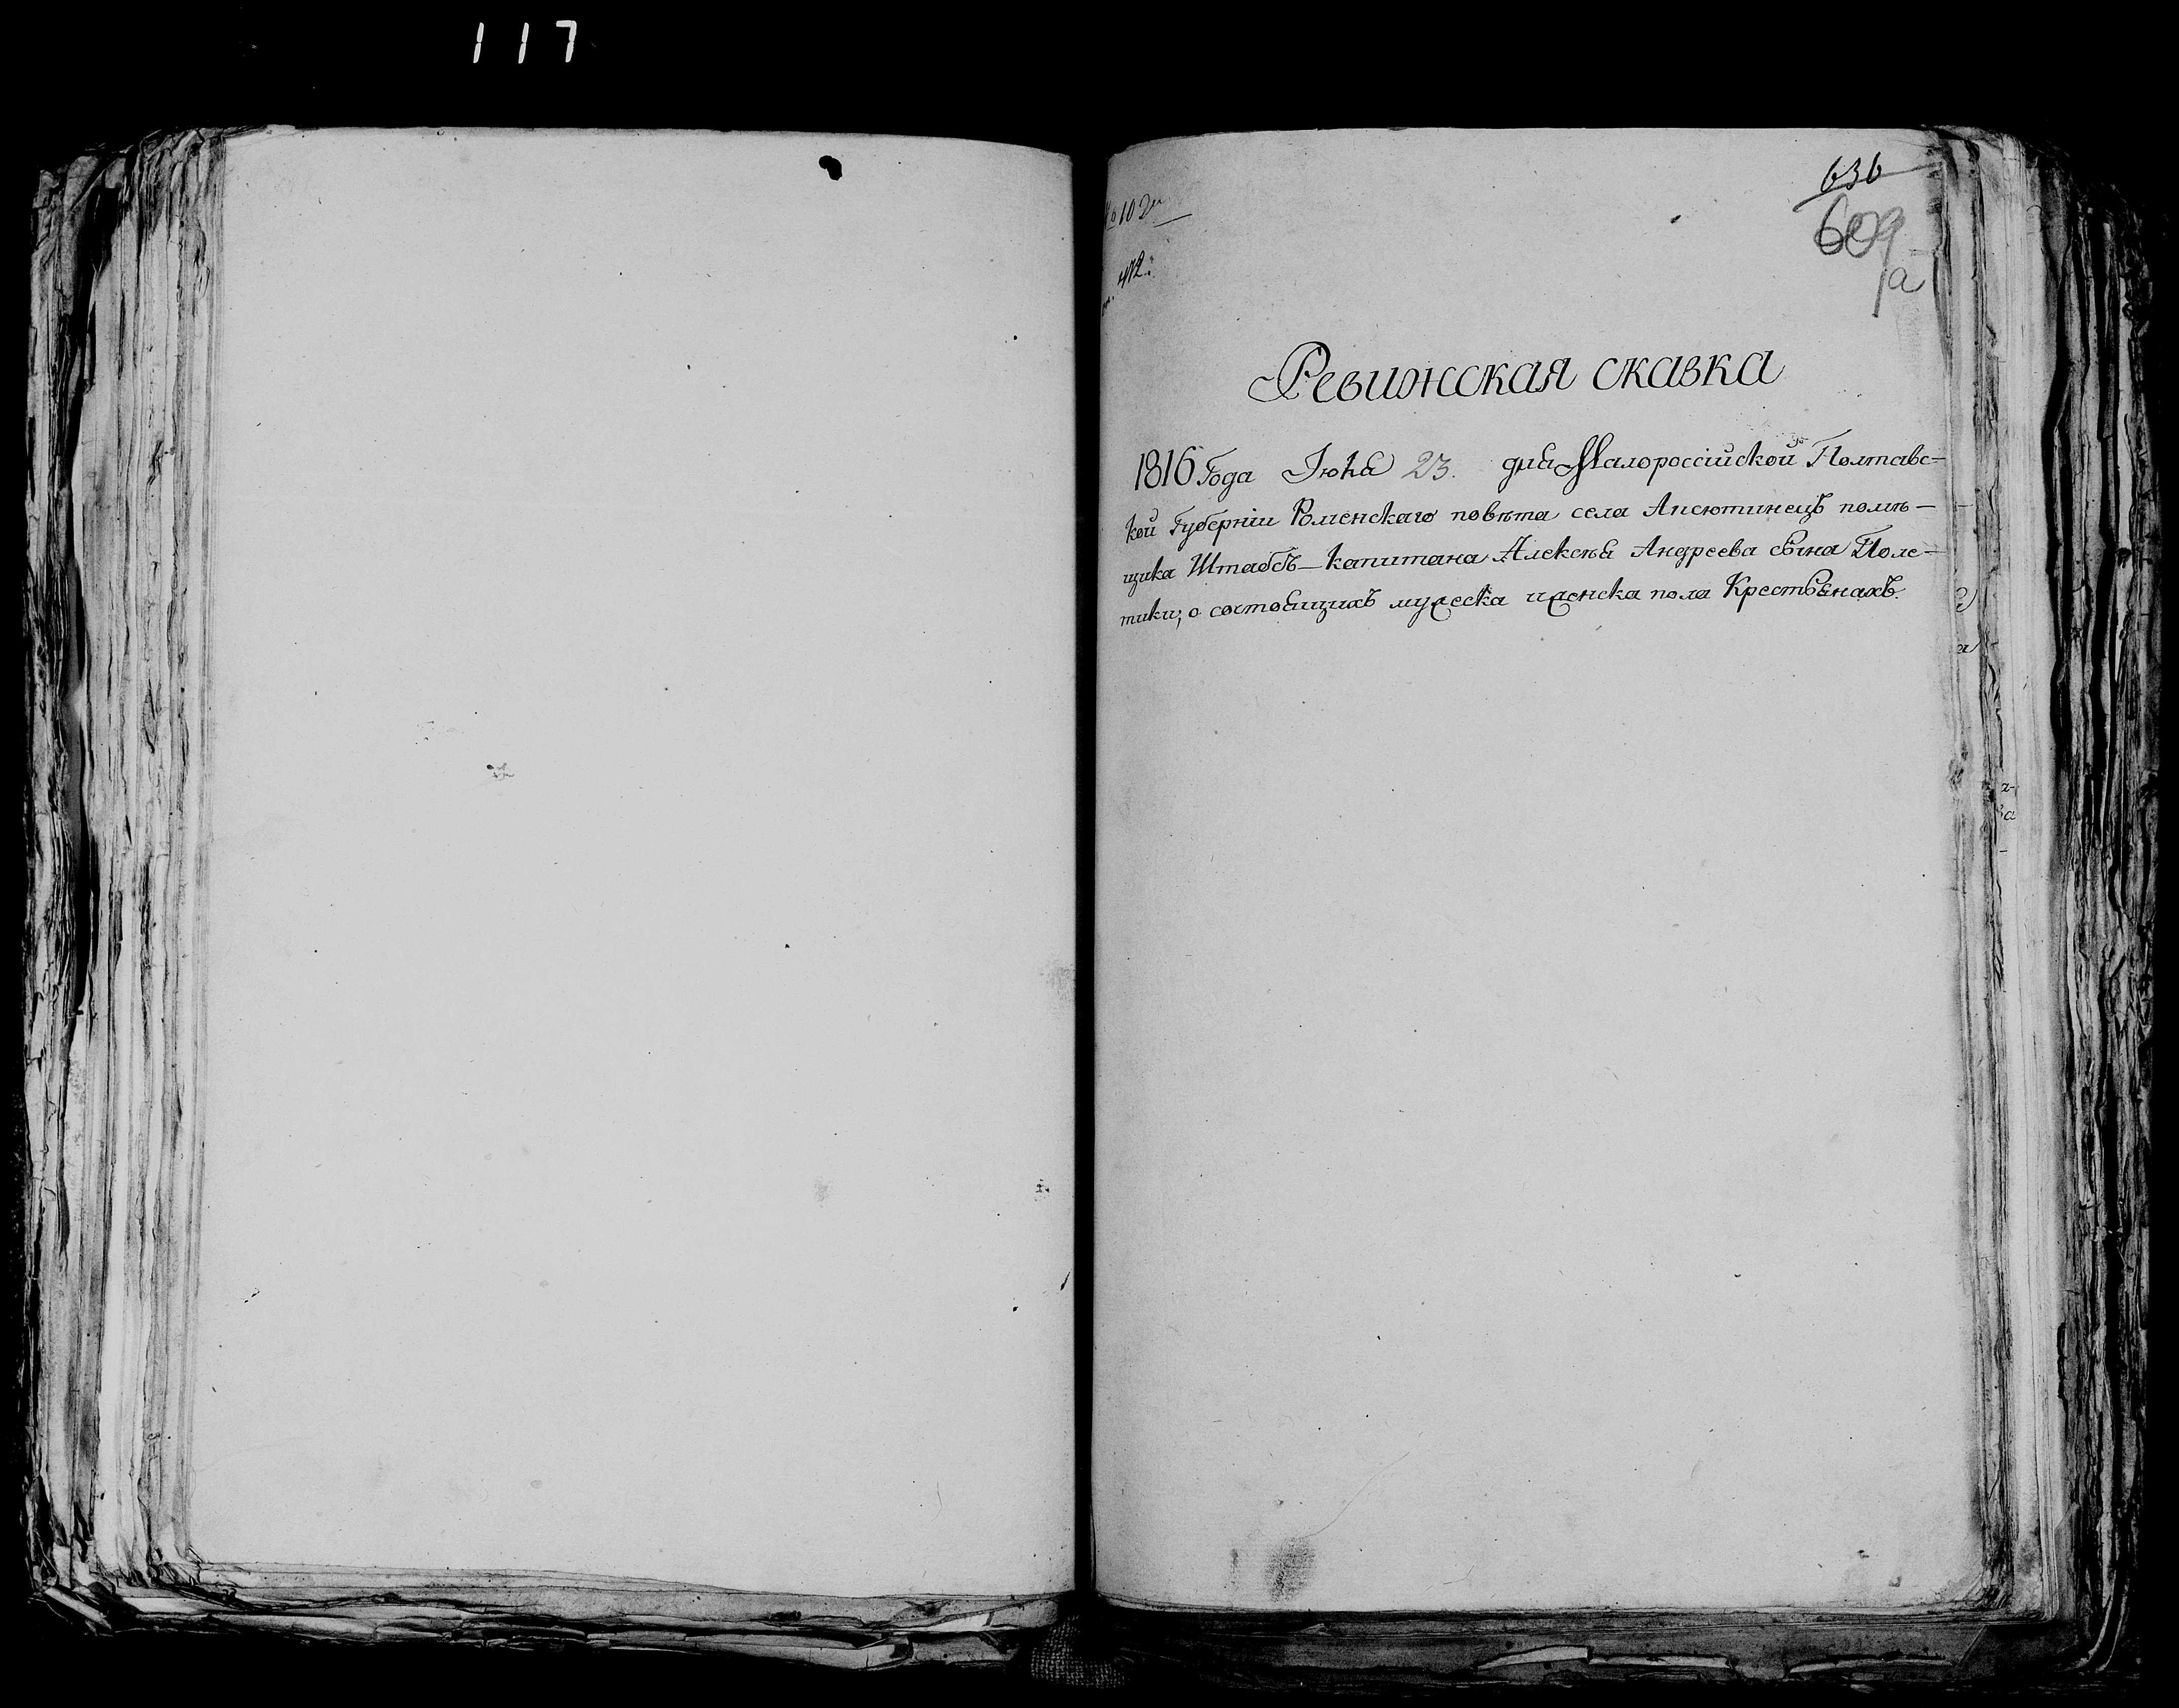 117
636
609
а
№ 102й
412.
Ревижская сказка
1816 Года Июня 23. дня Малороссійской Полтавс-
кой Губерніи Роменскаго повѣта села Аксютинецъ помѣ-
щика Штабсъ-Капитана Алексѣя Андреева сына Поле-
тики, о состоящихъ мужеска и женска пола Крестьянахъ